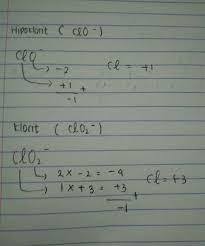 Hipoklorit ( ClO⁻ )
ClO⁻
→ -2 Cl = +1
→ +1 +
-1
Klorit ( ClO₂⁻ )
ClO₂⁻
→ 2 x -2 = -4
→ 1 x +3 = +3 + Cl = +3
-1